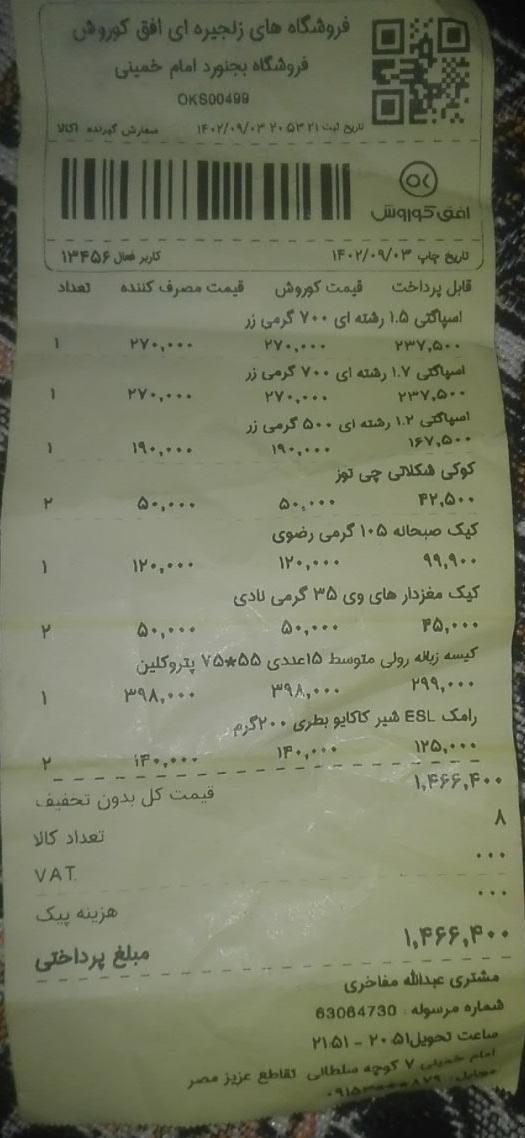 فروشگاه های زنجیره ای افق کوروش
فروشگاه بجنورد امام خمینی
OKS00499
تاریخ ثبت ۲۱ ۵۳ ۲۰ ۱۴۰۲/۰۹/۰۳ سفارش گیرنده اکالا
افق کوروش
تاریخ چاپ ۱۴۰۲/۰۹/۰۳ کاربر فعال ۱۳۴۵۶
قابل پرداخت قیمت کوروش قیمت مصرف کننده تعداد
اسپاگتی ۱.۵ رشته ای ۷۰۰ گرمی زر
۲۳۷,۵۰۰ ۲۷۰,۰۰۰ ۲۷۰,۰۰۰ ۱
اسپاگتی ۱.۷ رشته ای ۷۰۰ گرمی زر
۲۳۷,۵۰۰ ۲۷۰,۰۰۰ ۲۷۰,۰۰۰ ۱
اسپاگتی ۱.۲ رشته ای ۵۰۰ گرمی زر
۱۶۷,۵۰۰ ۱۹۰,۰۰۰ ۱۹۰,۰۰۰ ۱
کوکی شکلاتی چی توز
۴۲,۵۰۰ ۵۰,۰۰۰ ۵۰,۰۰۰ ۲
کیک صبحانه ۱۰۵ گرمی رضوی
۹۹,۹۰۰ ۱۲۰,۰۰۰ ۱۲۰,۰۰۰ ۱
کیک مغزدار های وی ۳۵ گرمی نادی
۴۵,۰۰۰ ۵۰,۰۰۰ ۵۰,۰۰۰ ۲
کیسه زباله رولی متوسط ۱۵عددی ۵۵*۷۵ پتروکلین
۲۹۹,۰۰۰ ۳۹۸,۰۰۰ ۳۹۸,۰۰۰ ۱
رامک ESL شیر کاکایو بطری ۲۰۰گرم
۱۲۵,۰۰۰ ۱۴۰,۰۰۰ ۱۴۰,۰۰۰ ۲
قیمت کل بدون تخفیف ۱,۴۶۶,۴۰۰
تعداد کالا ۸
VAT ۰۰۰
هزینه پیک ۰۰۰
مبلغ پرداختی ۱,۴۶۶,۴۰۰
مشتری عبدالله مفاخری
شماره مرسوله : 63064730
ساعت تحویل ۲۰:۵۱ - ۲۱:۵۱
امام خمینی ۷ کوچه سلطانی تقاطع عزیز مصر
موبایل: ۰۹۱۵۳***۸۷۹